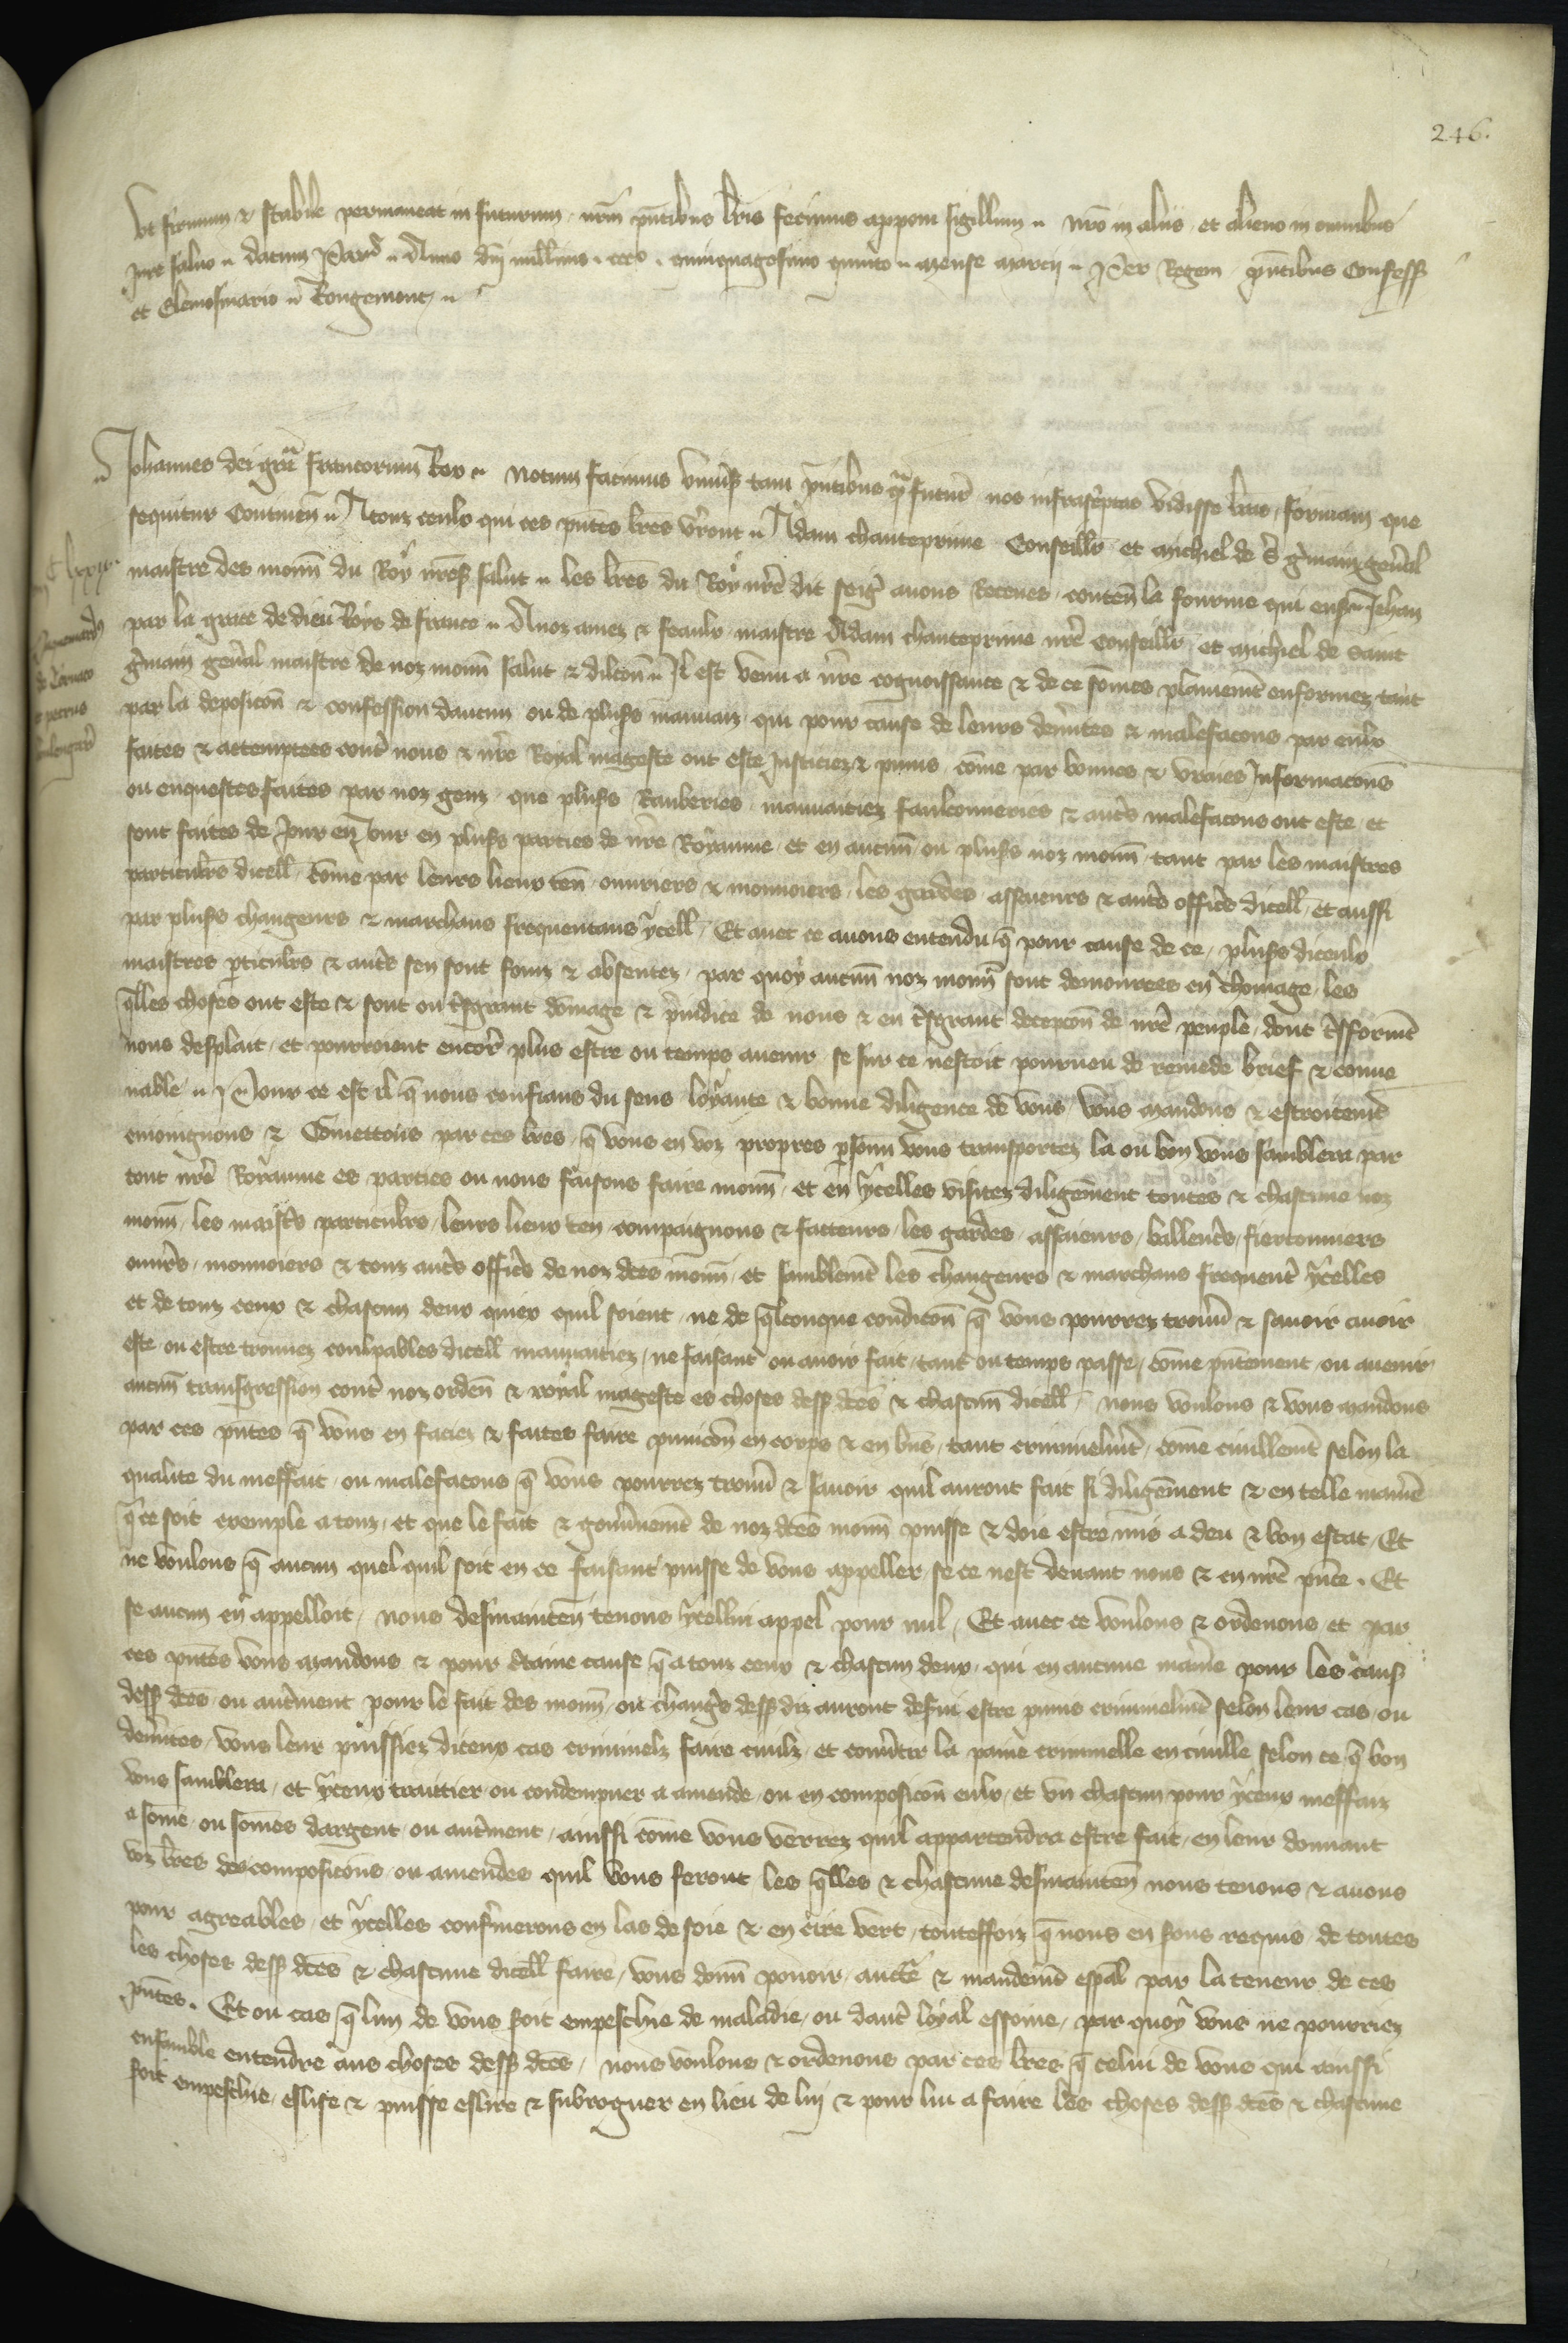 246.
Ut firmum & stabile permaneat in futurum nrm pntibus lris fecimus apponi sigillum nro in aliis et alieno in omnibus
jure salvo datum Par Anno dni millmo ccco quinquagesimo quinto mense marcij Per Regem pntibus Confess
et Elemosinario Rougemont
Johannes dei gra francorum Rex Notum facimus univs tam pntibus qm futur nos infrascptas vidisse lras formam que
sequitur Continen A touz ceulx qui ces pntes lres verront Adam chanteprime Conseillr et michiel de s gmain genal
maistre des monn du Roy nres salut les lres du Roy nre dit seigr avons Receues conten la fourme qui ensuit Jehan
par la grace de dieu Roys de france A noz amez & feaulx maistre Adam chanteprime nre Conseillr et michiel de saint
gmain genal maistre de noz monn salut & dilcon Il est venu a nre cognoissance & de ce somes plainemt enformez tant
par la deposicon & confession daucun ou de pluss mauvaiz qui pour cause de leurs demites & malefacons par eulx
faites & attemptees contr nous & nre Royal mageste ont este Justiciez & puniz come par bonnes & vraies Informacons
ou enquestes faites par noz genz que pluss Rauberies mauvaitiez faulconneries & autrs malefacons ont este et
sont faites de Jour en Jour en pluss parties de nre Royaume et en aucun ou pluss noz monn tant par les maistres
particulrs dicell come par leurs lieux ten ouvriers & monnoiers les gardes assaieurs & autrs offics dicell et aussi
par pluss changeurs & marchans frequentans ycell Et avec ce avons entendu q pour cause de ce pluss diceulx
maistres pticulrs & autrs sen sont fouiz & absentez par quoy aucun noz monn sont demourees en chomage les
qlles choses ont este & sont ou tsgrant domage & pjudice de nous & en tsgrant decepcon de nre peuple dont tsforment
nous desplait et pourroient encore plus estre ou temps avenir se sur ce nestoit pourveu de remede brief & conve
nable Pour ce est il q nous confians du sens loyaute & bonne diligence de vous vous mandons & estroitemt
enioignons & Comettons par ces lres q vous en voz propres psonn vous transportez la ou bon vous samblera par
tout nre Royaume es parties ou nous faisons faire monn et en ycelles visitez diligemment toutes & chascune noz
monn les maists particulrs leurs lieux ten compaignons & facteurs les gardes assaieurs ballencs fiertonniers
ouvrs monnoiers & touz autrs offics de noz dces monn et samblemt les changeurs & marchans frequent ycelles
et de touz ceux & chascun deux quiex quil soient ne de qlconque condicon q vous pourrez trouv & savoir avoir
este ou estre trouvez coulpables dicell mauvaitiez ne faisant ou avoir fait tant ou temps passe come pntement ou avenir
aucun transgression contr noz orden & royal mageste es choses dess dces & chascun dicell nous voulons & vous mandons
par ces pntes q vous en faciez & faites faire punicon en corps & en bns tant criminelmt come civillemt selon la
qualite du meffait ou malefacons q vous pourrez trouv & savoir quil auront fait si diligemment & en telle manie
q ce soit exemple a touz et que le fait & gouvnemt de noz dces monn puisse & doie estre mis a deu & bon estat Et
ne voulons q aucun quel quil soit en ce faisant puisse de vous appeller se ce nest devant nous & en nre pnce Et
se aucun en appelloit nous desmainten tenons ycellui appel pour nul Et avec ce voulons & ordenons et par
ces pntes vous mandons & pour ctaine cause q a touz ceux & chascun deux qui en aucune manie pour les caus
dess dces ou autrment pour le fait des monn ou changs dess diz auront desvi estre puniz criminelmt selon leur cas ou
demites vous leur puissiez diceux cas criminelz faire civilz et convtir la paine criminelle en civille selon ce q bon
vous samblera et yceux traittier ou condempner a amende ou en composicon eulx et un chascun pour yceux meffaiz
a some ou somes dargent ou autrment ainssi come vous verrez quil appartendra estre fait en leur donnant
voz lres des composicons ou amendes quil vous feront les qlles & chascune desmainten nous tenons & avons
pour agreables et ycelles confmerons en las de soie & en cire vert touteffoiz q nous en sons requis de toutes
les choses dess dces & chascune dicell faire vous donn povoir aucte & mandemt espal par la teneur de ces
pntes Et ou cas q lun de vous soit empeschie de maladie ou dautr loyal essoine par quoy vous ne pourriez
ensamble entendre aus choses dess dces nous voulons & ordenons par ces lres q celui de vous qui ainssi
soit empeschie eslise & puisse eslire & subroguer en lieu de lui & pour lui a faire les choses dess dces & chascune